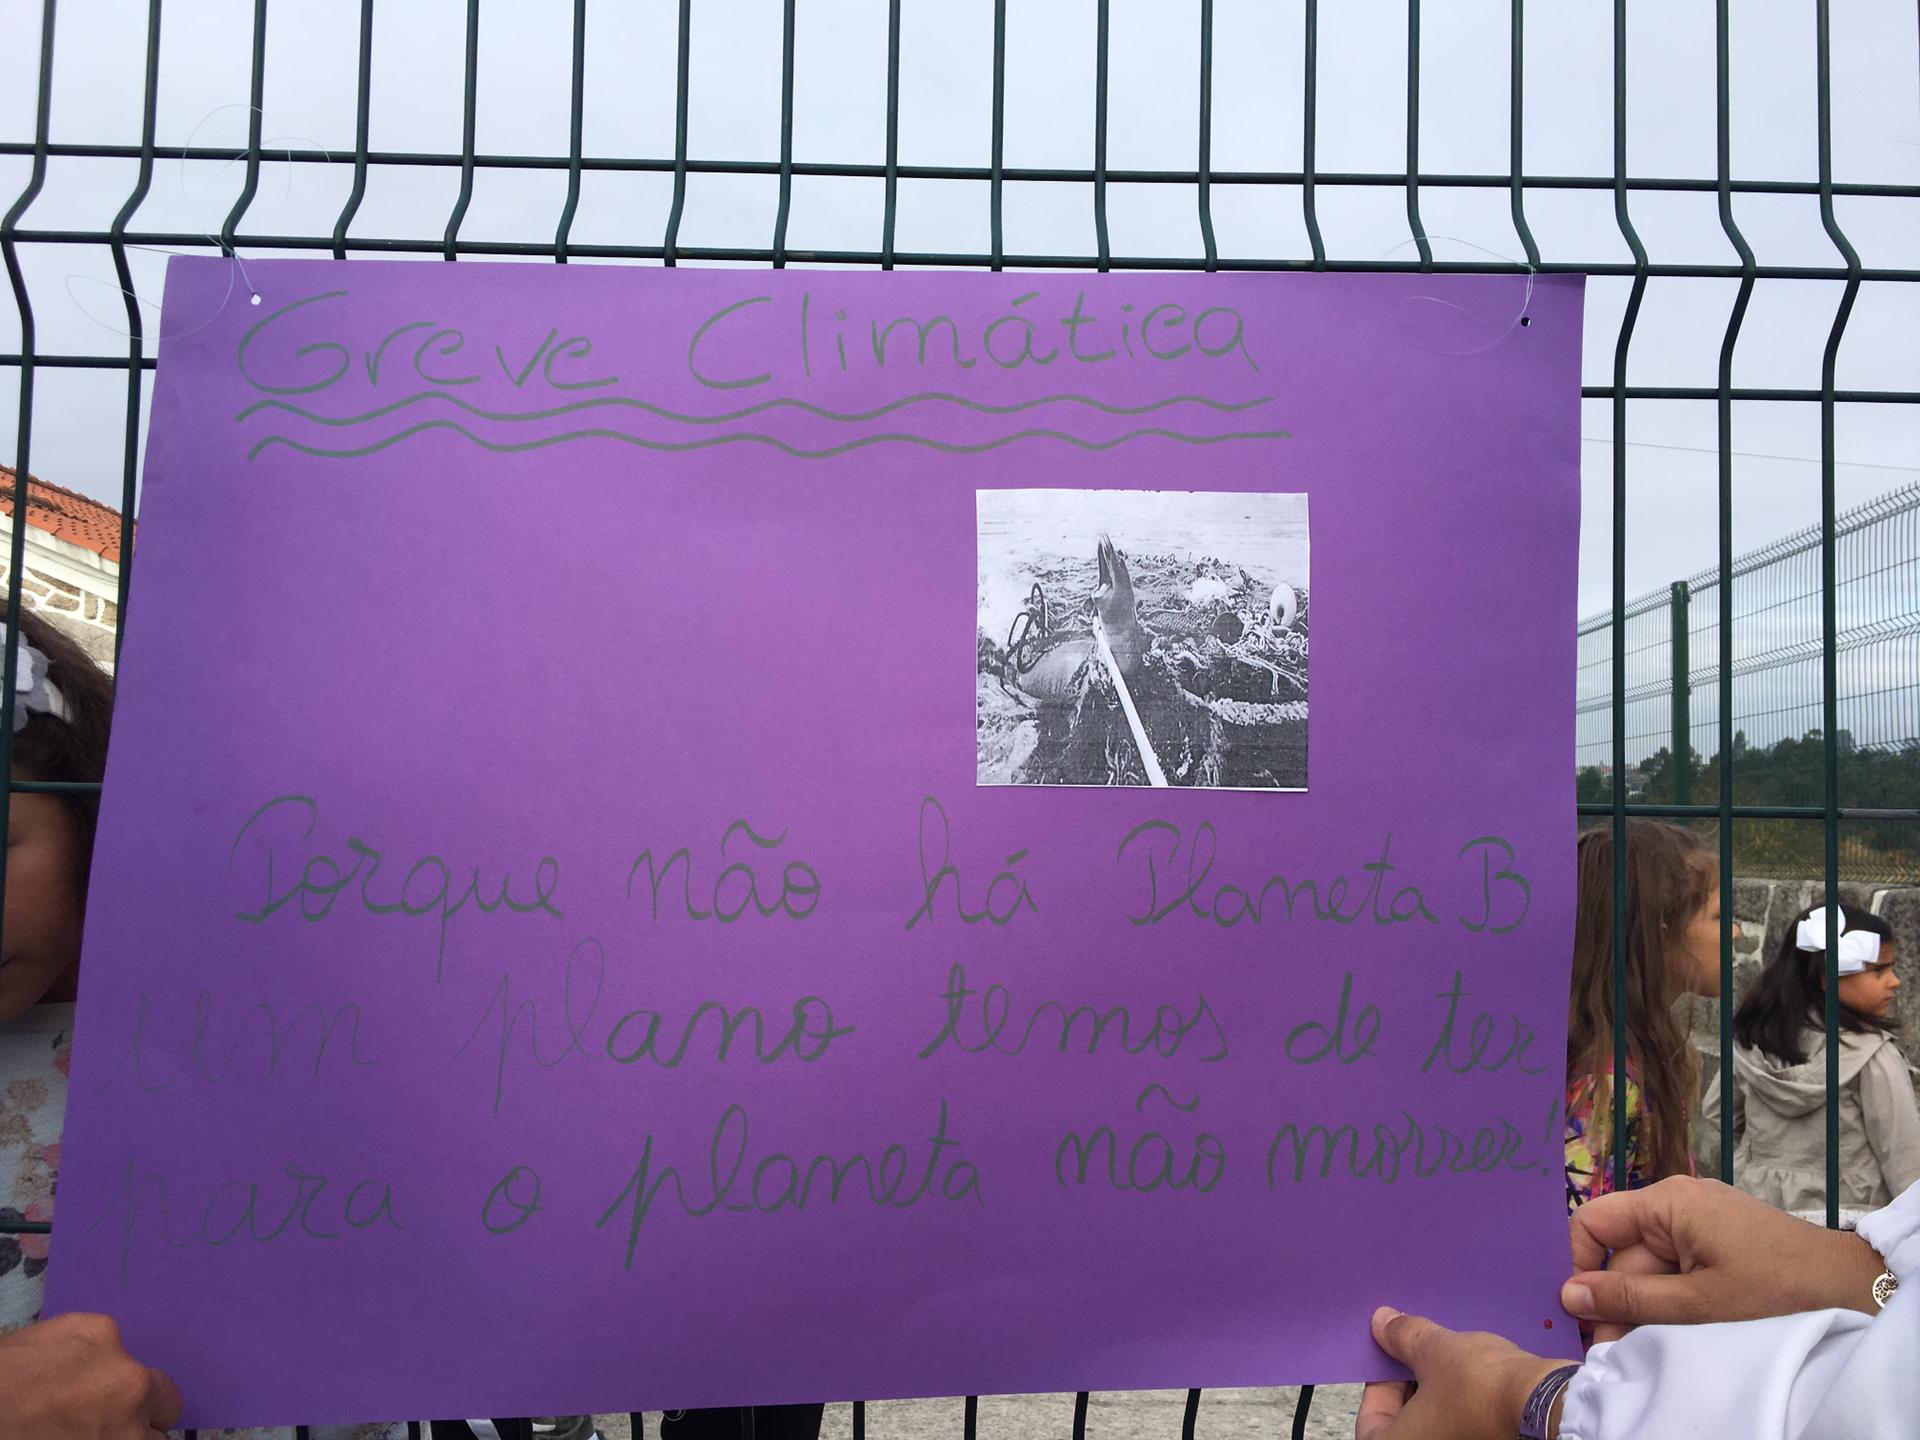 Greve Climática
Porque não há Planeta B
um plano temos de ter
para o planeta não morrer!